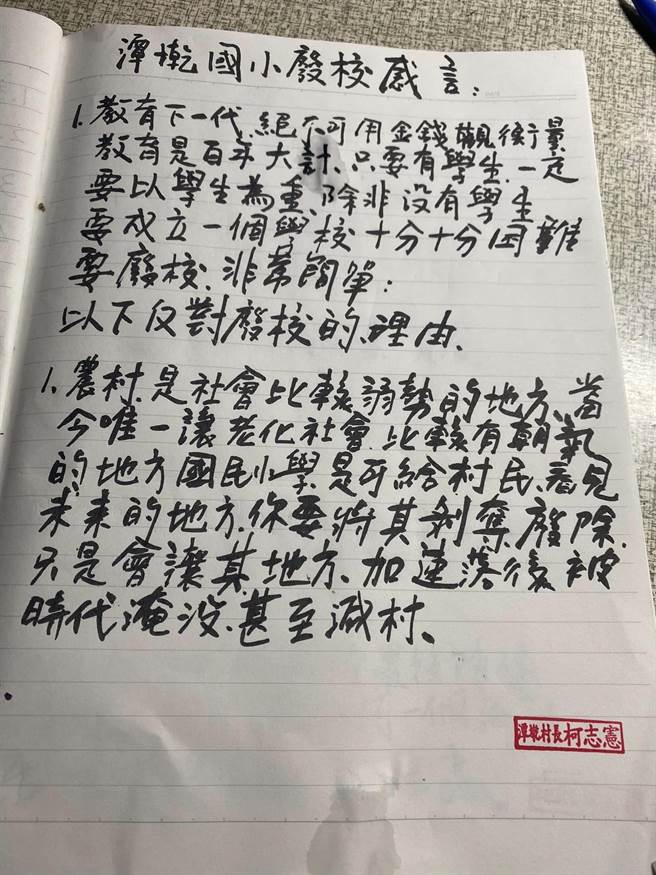 潭墘國小廢校感言：
1.教育下一代、絕不可用金錢觀衡量
教育是百年大計、只要有學生、一定
要以學生為重、除非沒有學生
要成立一個學校十分十分困難
要廢校、非常簡單：
以下反對廢校的理由、
1.農村、是社會比較弱勢的地方、當
今唯一讓老化社會、比較有朝氣
的地方國民小學是可給村民、看見
未來的地方、你要將其剝奪廢除、
只是會讓其地方、加速落後被
時代淹沒、甚至滅村、
潭墘村長柯志憲